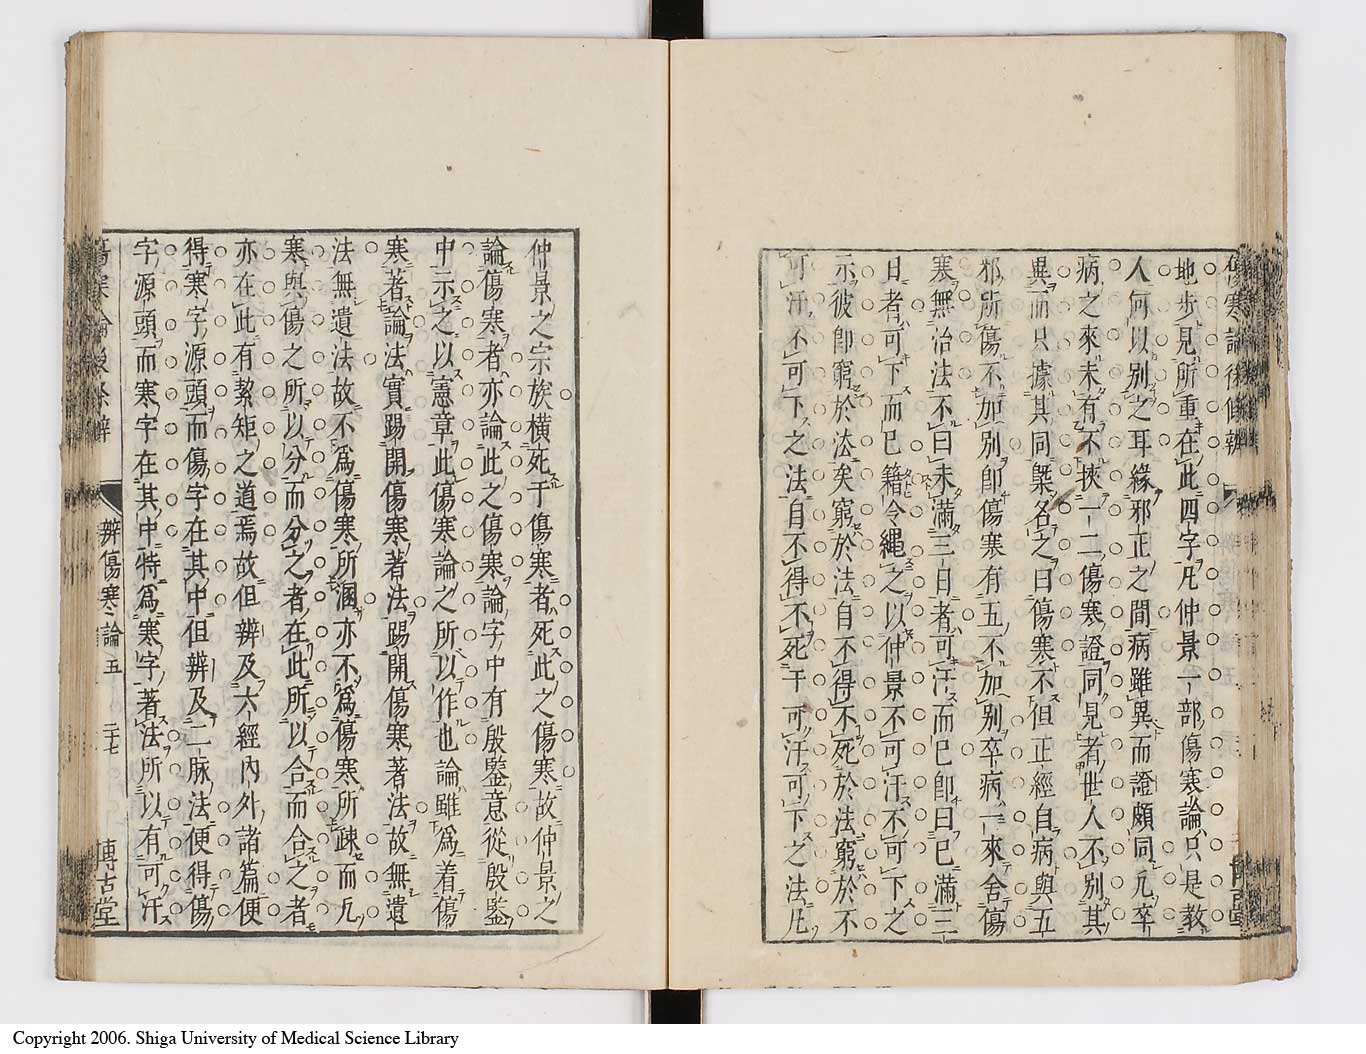 傷寒論後條辨
地步見所重在此四字凡仲景一部傷寒論只是教
人何以別之耳緣邪正之間病雖異而證頗同凡卒
病之來未有不挾一二傷寒證同見者世人不別其
異而只據其同槩名之曰傷寒不但正經自病與五
邪所傷不加別即傷寒有五不加別卒病一來舍傷
寒無治法不曰未滿三日者可汗而已即曰已滿三
日者可下而已籍令繩之以仲景不可汗不可下之
示彼即窮於法矣窮於法自不得不死於法窮於不
可汗不可下之法自不得不死于可汗可下之法凡
仲景之宗族橫死于傷寒者死此之傷寒故仲景之
論傷寒者亦論此之傷寒論字中有殷鑒意從殷鑒
中示之以憲章此傷寒論之所以作也論雖爲着傷
寒著論法實踢開傷寒著法踢開傷寒著法故無遺
法無遺法故不爲傷寒所溷亦不爲傷寒所疎而凡
寒與傷之所以分而分之者在此所以合而合之者
亦在此有絜矩之道焉故但辨及六經內外諸篇便
得寒字源頭而傷字在其中但辨及二脉法便得傷
字源頭而寒字在其中特爲寒字著法所以有可汗
傷寒論後條辨 辨傷寒論五 二十七 博古堂
Copyright 2006. Shiga University of Medical Science Library